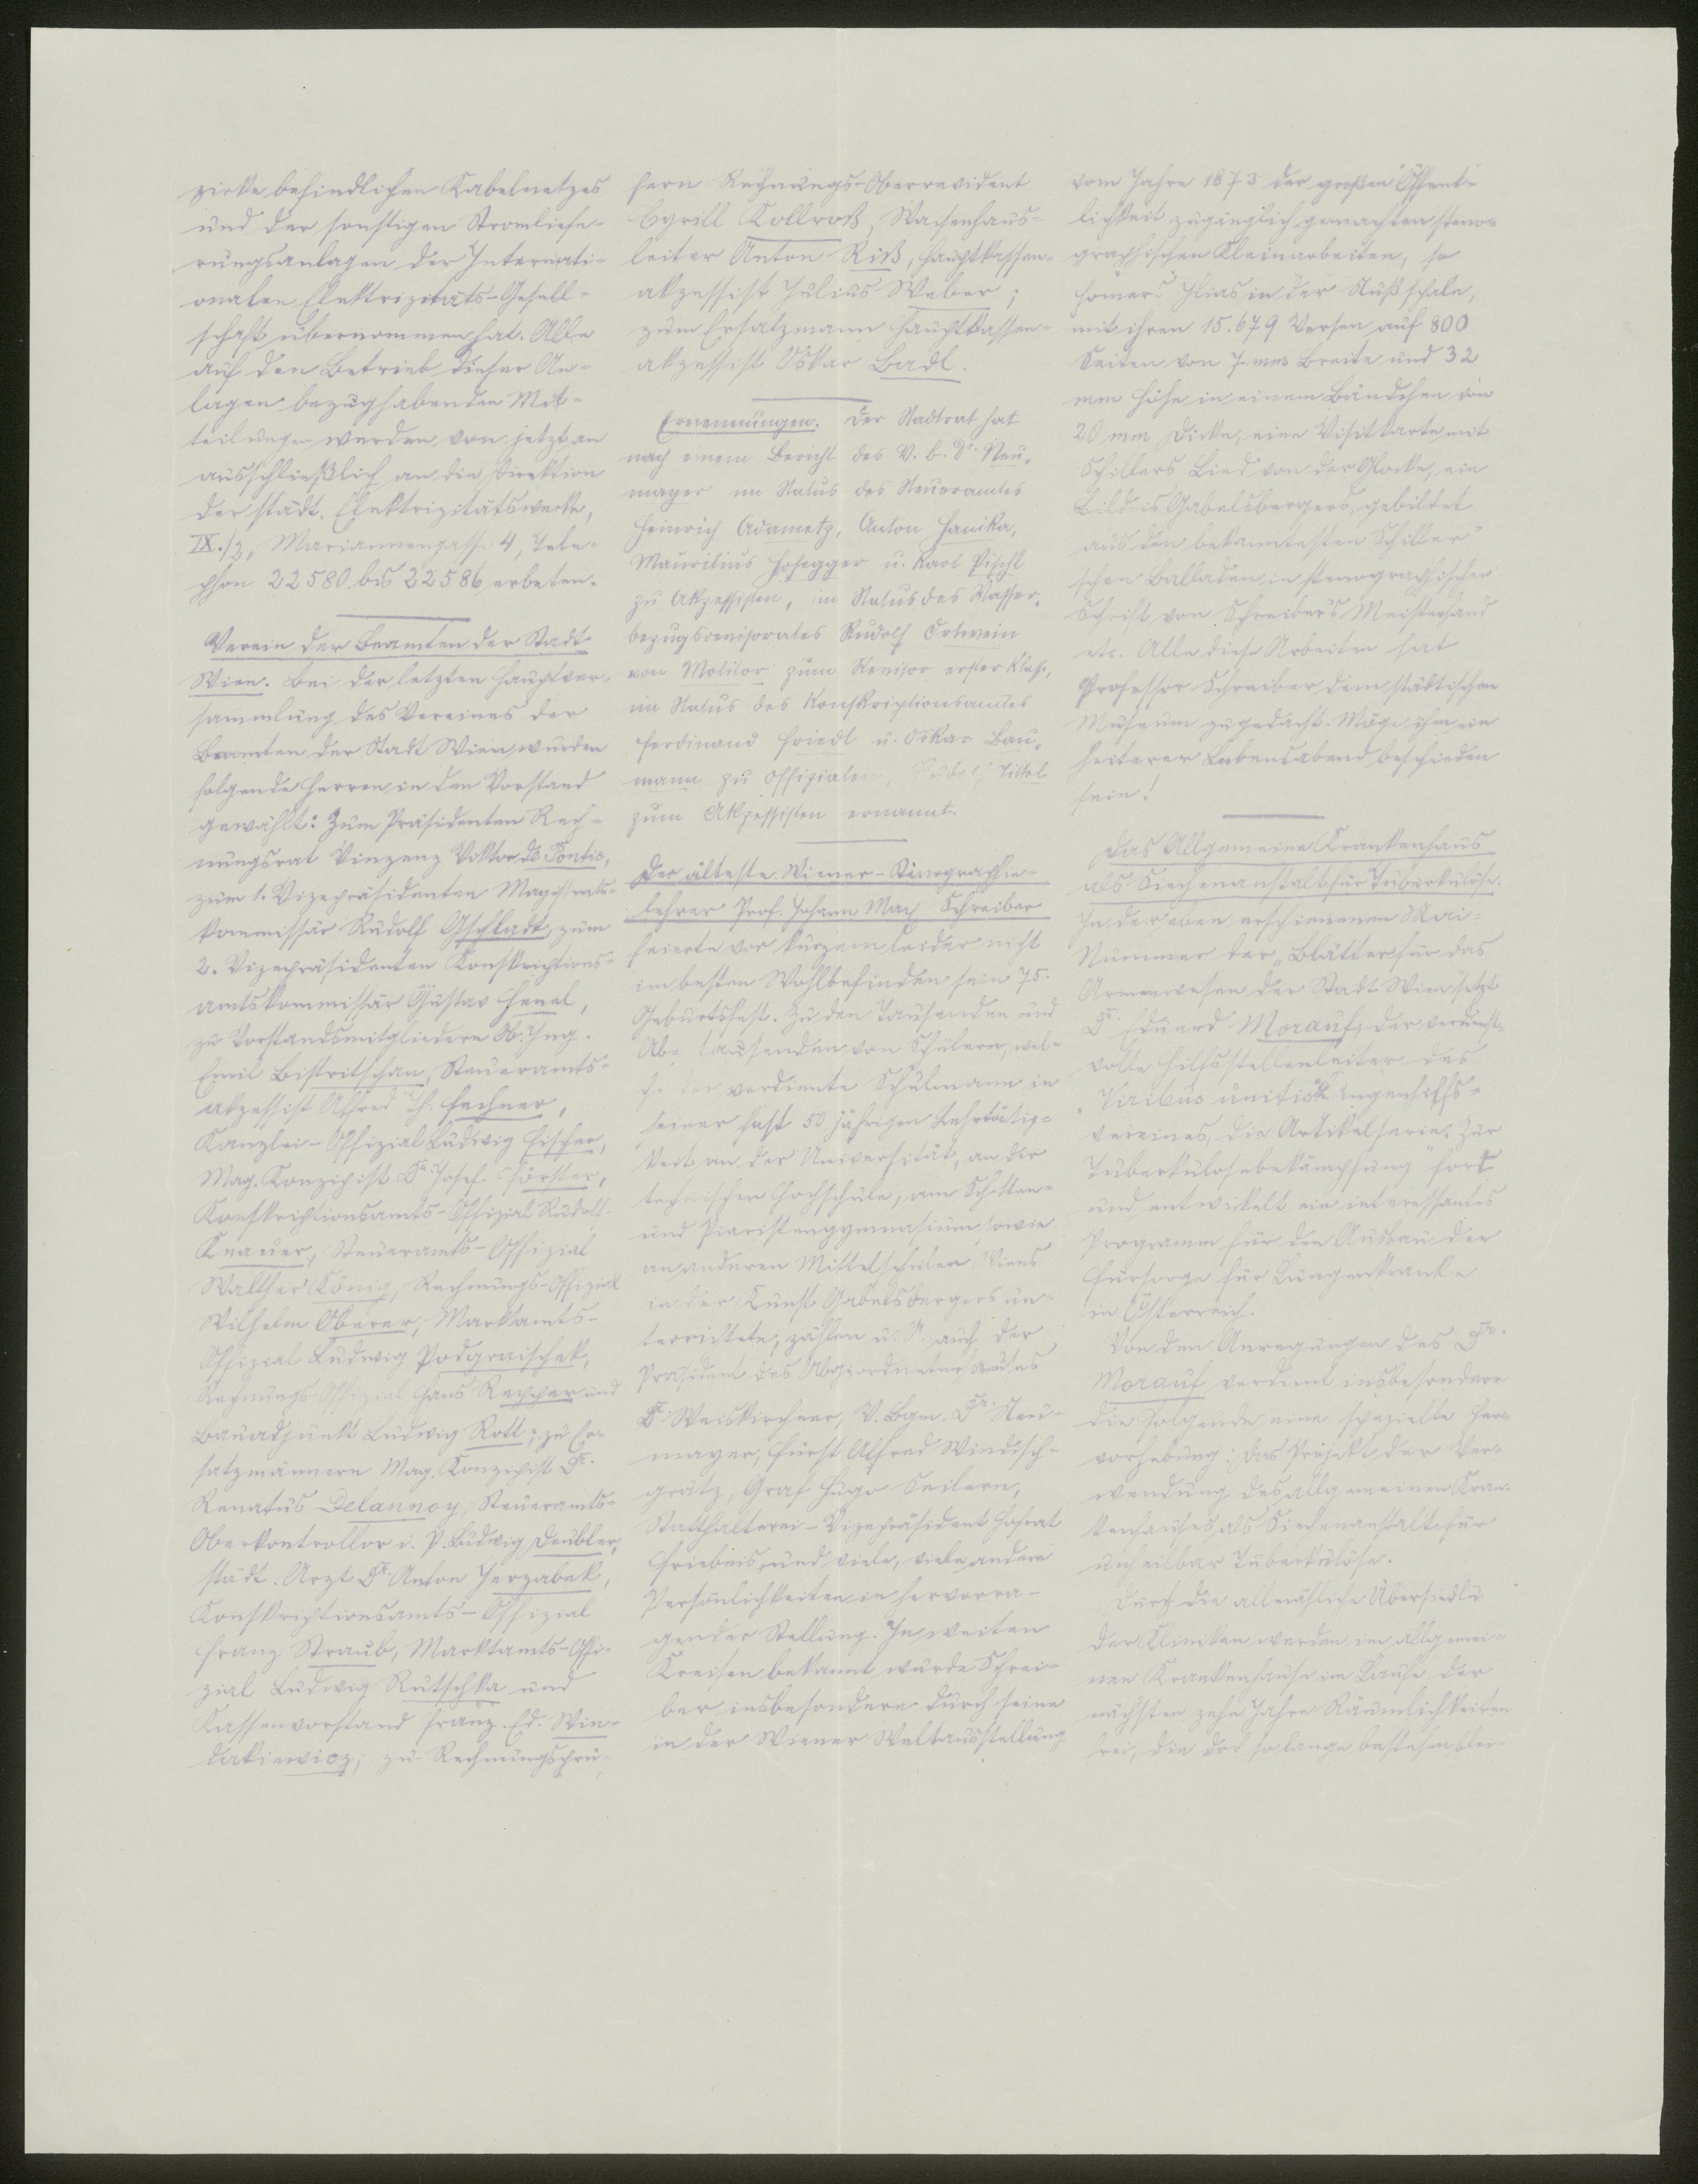 zirke befindlichen Kabelnetzes
und der sonstigen Stromliefe-
rungsanlagen der Internati-
onalen Elektrizitäts-Gesell-
schaft übernommen hat. Alle
auf den Betrieb dieser An-
lagen bezughabenden Mit-
teilungen werden von jetzt an
ausschließlich an die Direktion
der städt. Elektrizitätswerke,
IX./3, Mariannengasse 4, Tele-
phon 22580 bis 22586 erbeten.
Verein der Beamten der Stadt
Wien. Bei der letzten Hauptver-
sammlung des Vereines der
Beamten der Stadt Wien wurden
folgende Herren in den Vorstand
gewählt: Zum Präsidenten Rech-
nungsrat Vinzenz Viktor de Pontis,
zum 1. Vizepräsidenten Magistrats-
kommissär Rudolf Gschladt, zum
2. Vizepräsidenten Konskriptions-
amtskommissär Gustav Henel,
zu Vorstandsmitgliedern Ob. Ing.
Emil Bistritschan, Steueramts-
akzessist Alfred Th. Fechner,
Kanzlei-Offizial Ludwig Fischer,
Mag. Konzipist Dr. Josef Förster,
Konskriptionsamts-Offizial Rudolf
Knauer, Steueramts-Offizial
Walther König, Rechnungs-Offizial
Wilhelm Oberer, Marktamts-
Offizial Ludwig Podgraischek,
Rechnungs-Offizial Hans Rechher und
Bauadjunkt Ludwig Rott; zu Er-
satzmännern Mag. Konzipist Dr.
Renatus Delannoy, Steueramts-
Oberkontrollor i. P. Ludwig Deubler,
städt. Arzt Dr. Anton Jerzabek,
Konskriptionsamts-Offizial
Franz Straub, Marktamts-Offi-
zial Ludwig Rutschka und
Kassenvorstand Franz Ed. Win-
dakiewicz; zu Rechnungsprü-
fern Rechnungs-Oberrevident
Cyrill Kollroß, Waisenhaus-
leiter Anton Riß, Hauptkassen-
akzessist Julius Weber;
zum Ersatzmann Hauptkassen-
akzessist Oskar Badl.
Ernennungen. Der Stadtrat hat
nach einem Bericht des V. B. Dr. Neu-
mayer im Status des Steueramtes
Heinrich Adametz, Anton Hanika,
Mauritius Hohegger u. Karl Pischl
zu Akzessisten, im Status des Wasser-
bezugsrevisorates Rudolf Ortwein
von Molitor zum Revisor erster Klasse,
im Status des Konskriptionsamtes
Ferdinand Friedl u. Oskar Bau-
mann zu Offizialen, Rudolf Tittel
zum Akzessisten ernannt.
Der älteste Wiener-Stenographie-
lehrer Prof. Johann Max Schreiber
feierte vor kurzem leider nicht
im besten Wohlbefinden sein 75.
Geburtsfest. Zu den Tausenden und
Abertausenden von Schülern, wel-
che der verdiente Schulmann in
seiner fast 50 jährigen Lehrtätig-
keit an der Universität, an der
technischen Hochschule, am Schotten-
und Piaristengymnasium sowie
an anderen Mittelschulen Wiens
in der Kunst Gabelsbergers un-
terrichtete, zählen u. A. auch der
Präsident des Abgeordnetenhauses
Dr. Weiskirchner, V. Bgm. Dr. Neu-
mayer, Fürst Alfred Windisch-
grätz, Graf Hugo Seilern,
Statthalterei-Vizepräsident Hofrat
Friebeis und viele, viele andere
Persönlichkeiten in hervorra-
gender Stellung. In weiten
Kreisen bekannt wurde Schrei-
ber insbesondere durch seine
in der Wiener Weltausstellung
vom Jahre 1873 der großen Öffent-
lichkeit zugänglich gemachten steno-
graphischen Kleinarbeiten, so
Homers Ilias in der Nußschale,
mit ihren 15.679 Versen auf 800
Seiten von 7 mm Breite und 32
mm Höhe in einem Bändchen von
20 mm Dicke, eine Visitkarte mit
Schillers Lied von der Glocke, ein
Bildnis Gabelsbergers, gebildet
aus den bekanntesten Schiller'
schen Balladen in stenographischer
Schrift von Schreibers Meisterhand
etc. Alle diese Arbeiten hat
Professor Schreiber dem städtischen
Museum zugedacht. Möge ihm ein
heiterer Lebensabend beschieden
sein!
Das Allgemeine Krankenhaus
als Siechenanstalt für Tuberkulöse.
In der eben erschienenen Mai-
Nummer der „Blätter für das
Armenwesen der Stadt Wien" setzt
Dr. Eduard Morauf, der verdienst-
volle Hilfsstellenleiter des
„Viribus unitis" Jugendhilfs-
vereines, die Artikelserie „Zur
Tuberkulosebekämpfung" fort
und entwickelt ein interessantes
Programm für den Ausbau der
Fürsorge für Lungenkranke
in Österreich.
Von den Anregungen des Dr.
Morauf verdient insbesondere
die folgende eine spezielle Her-
vorhebung: Das Projekt der Ver-
wendung des allgemeinen Kran-
kenhauses als Siechenanstalt für
unheilbar Tuberkulöse.
Durch die allmähliche Übersiedlu
der Kliniken werden im allgemei-
nen Krankenhause im Laufe der
nächsten zehn Jahre Räumlichkeiten
frei, die doch so lange bestehen blei-